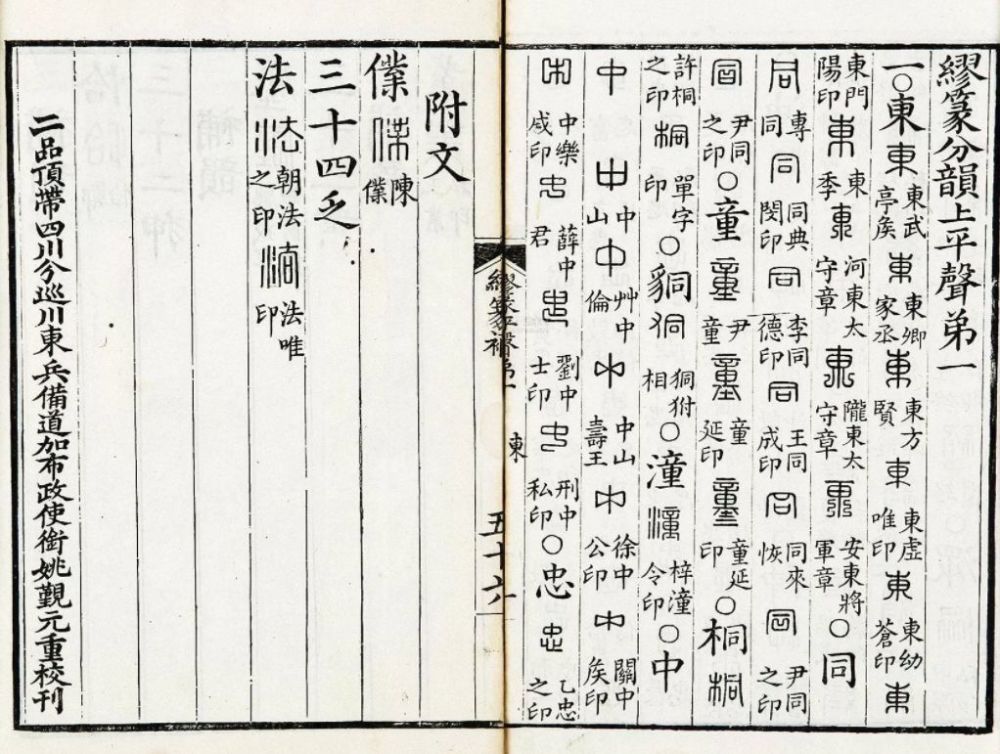 繆篆分韻上平聲弟一
一○東東東武亭矦東東鄉家丞東東方賢東東虛唯印東東幼蒼印東
東門陽印東東季東河東太守章東隴東太守章東安東將軍章○同
同專同同同典閔印同李同德印同王同成印同同來恢同尹同之印
同尹同之印○童童尹童童童延印童童延印○桐桐
許桐之印桐單字印○潼潼梓潼令印○中
中中中山中艸中倫中中山壽王中徐中公印中關中矦印
中中樂成印中薛中君中劉中士印中刑中私印○忠忠乙忠之印
繆篆
東
五十六
附文
㒒㒒陳㒒
三十四乏
法法朝法之印法法唯印
二品頂帶四川分巡川東兵備道加布政使銜姚覲元重校刊